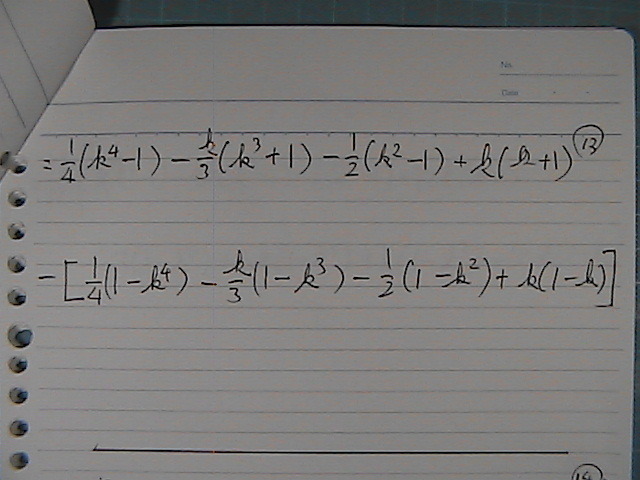 No.
Date
= 1/4 (k⁴ − 1) − k/3 (k³ + 1) − 1/2 (k² − 1) + k(k + 1) ⑬
− [ 1/4 (1 − k⁴) − k/3 (1 − k³) − 1/2 (1 − k²) + k(1 − k) ]